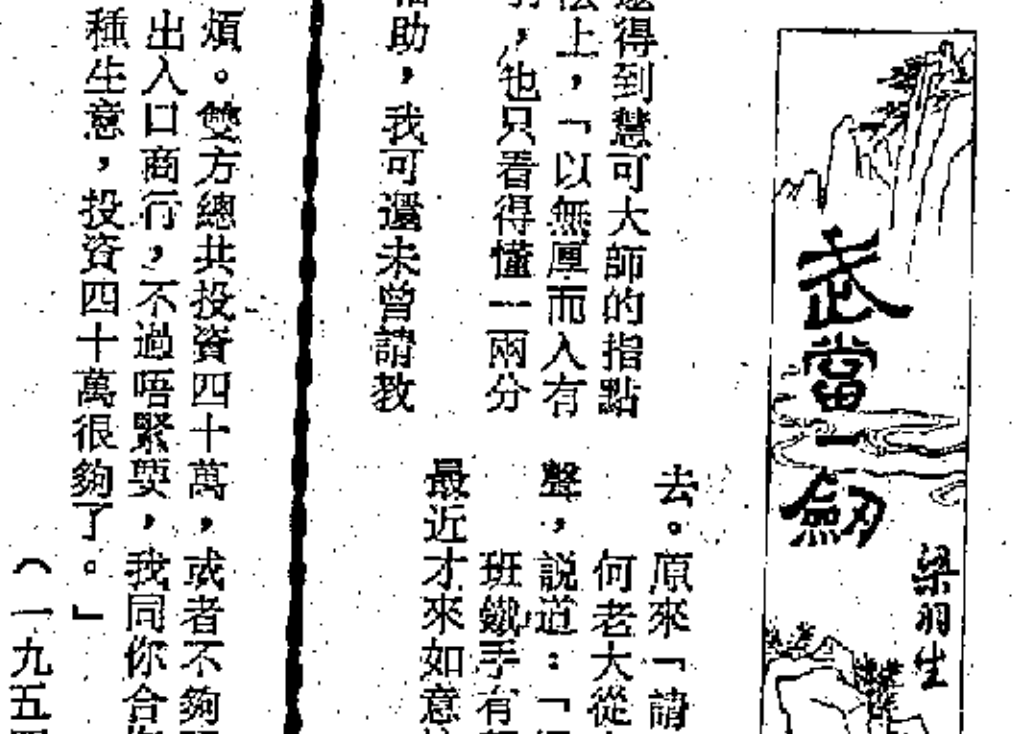 武當一劍
梁羽生
去。原來「請
何老大從
聲，説道：「
班鐵手有
最近才來如意
得到慧可大師的指點
上，「以無厚而入有
，也只看得懂一兩分
助，我可還未曾請教
煩。雙方總共投資四十萬，或者不夠
出入口商行，不過唔緊要，我同你合
種生意，投資四十萬很夠了。」
（一九五